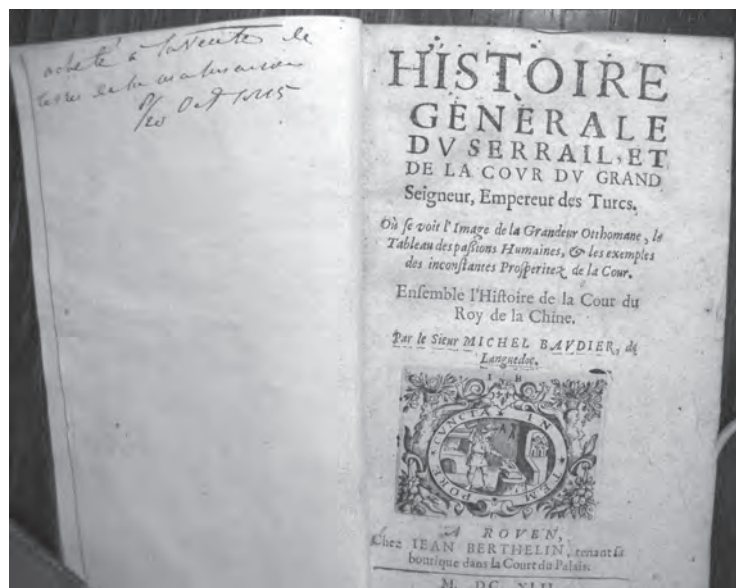 acheté à la vente de
8/20 Oct
HISTOIRE
GENERALE
DV SERRAIL, ET
DE LA COVR DV GRAND
Seigneur, Empereur des Turcs.
Où ſe voit l'Image de la Grandeur Otthomane, le
Tableau des paſsions Humaines, & les exemples
des inconſtantes Proſperitez de la Cour.
Enſemble l'Hiſtoire de la Cour du
Roy de la Chine.
Par le Sieur MICHEL BAVDIER, de
Languedoc.
I B
CVNCTA IN TEMPORE
A ROVEN,
Chez IEAN BERTHELIN, tenant ſa
boutique dans la Court du Palais.
M. DC. XLII